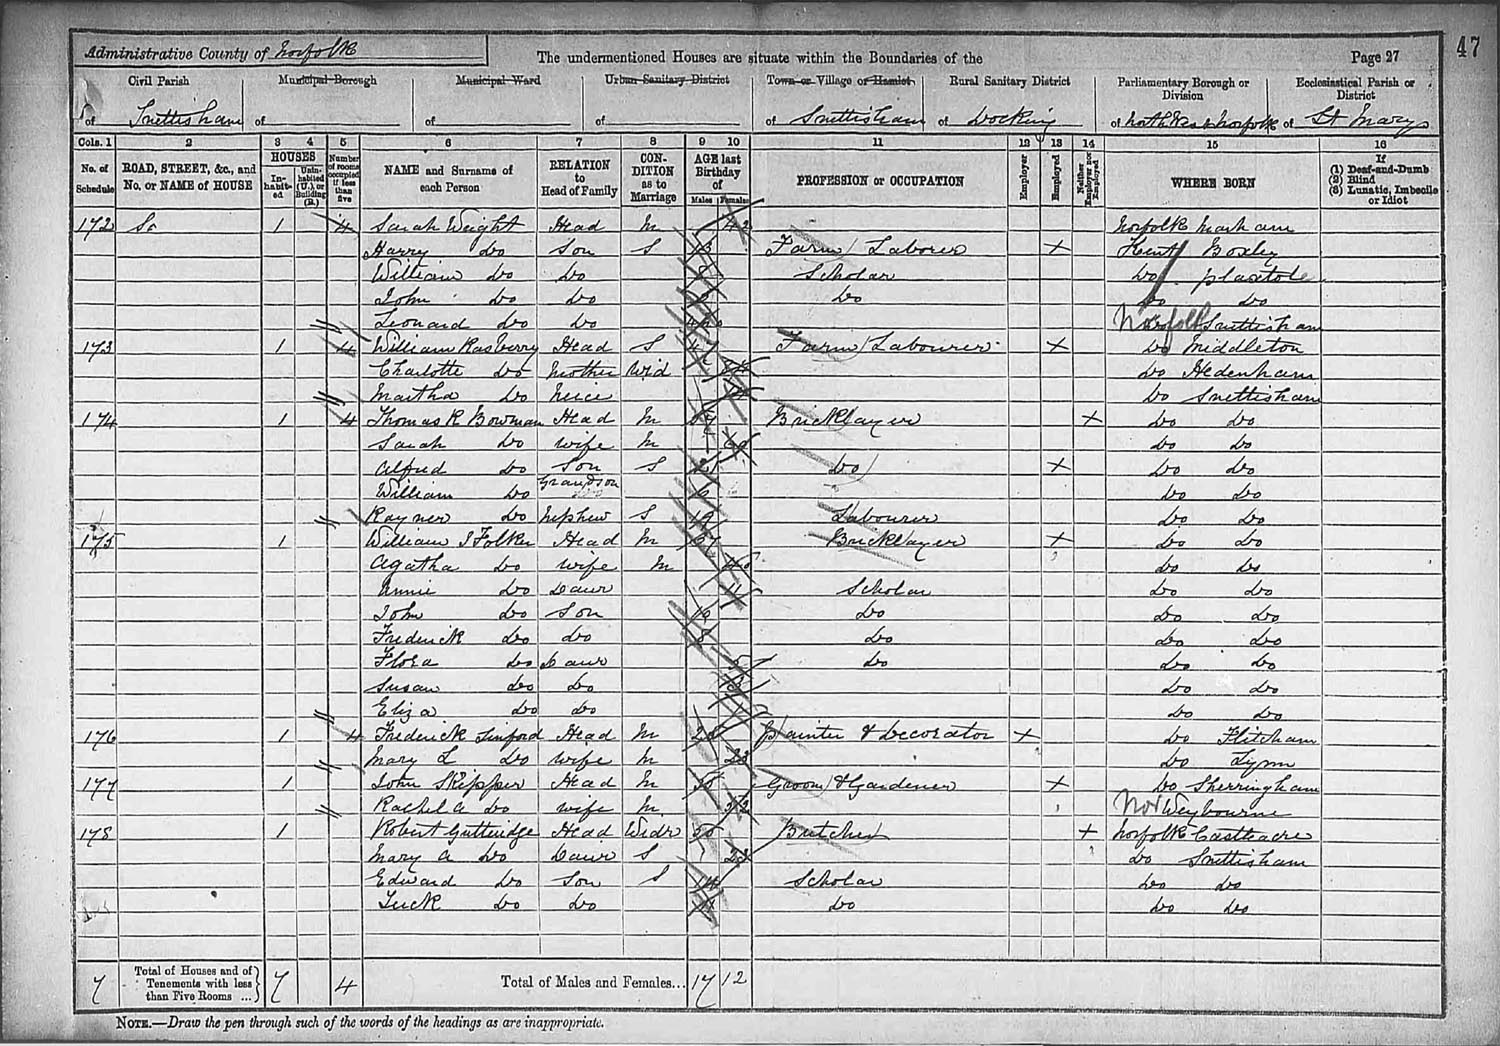 47
Administrative County of Norfolk
The undermentioned Houses are situate within the Boundaries of the
Page 27
Civil Parish Municipal Borough Municipal Ward Urban Sanitary District Town or Village or Hamlet Rural Sanitary District Parliamentary Borough or Division Ecclesiastical Parish or District
of Snettisham of of of of Snettisham of Docking of North West Norfolk of St Marys
Cols. 1 2 3 4 5 6 7 8 9 10 11 12 13 14 15 16
No. of Schedule ROAD, STREET, &c., and No. or NAME of HOUSE HOUSES Inhabited Uninhabited (U.), or Building (B.) Number of rooms occupied if less than five NAME and Surname of each Person RELATION to Head of Family CONDITION as to Marriage AGE last Birthday of Males Females PROFESSION or OCCUPATION Employer Employed Neither Employer nor Employed WHERE BORN If (1) Deaf-and-Dumb (2) Blind (3) Lunatic, Imbecile or Idiot
172 1 4 Sarah Wright Head M 42 Norfolk Marham
Harry Do Son S 13 Farm Laborer X Kent Boxley
William Do Do Scholar Do plaxtole
John Do Do Do Do Do
Leonard Do Do Norfolk Snettisham
173 1 4 William Rasberry Head S Farm Labourer X Do Middleton
Charlotte Do Mother Wid Do Hedenham
Martha Do Neice Do Snettisham
174 1 4 Thomas R Bowman Head M Bricklayer X Do Do
Sarah Do wife M 60 Do Do
Alfred Do Son S Do X Do Do
William Do Grandson 6 Do Do
Rayner Do Nephew S 19 Labourer Do Do
175 1 William J Folker Head M Bricklayer X Do Do
Agatha Do wife M Do Do
Annie Do Daur 11 Scholar Do Do
John Do Son 10 Do Do Do
Frederick Do Do 8 Do Do Do
Flora Do Daur 5 Do Do Do
Susan Do Do 3 Do Do
Eliza Do Do 1 Do Do
176 1 4 Frederick Linford Head M Painter & Decorator X Do Flitcham
Mary L Do wife M 23 Do Lynn
177 1 John Skipper Head M Groom & Gardener X Do Sherringham
Rachel A Do wife M 52 Nor Weybourne
178 1 Robert Gutteridge Head Widr 55 Butcher X Norfolk Castleacre
Mary A Do Daur S 23 Do Snettisham
Edward Do Son S 14 Scholar Do Do
Tuck Do Do 11 Do Do Do
7 Total of Houses and of Tenements with less than Five Rooms ... 7 4 Total of Males and Females... 17 12
NOTE.—Draw the pen through such of the words of the headings as are inappropriate.